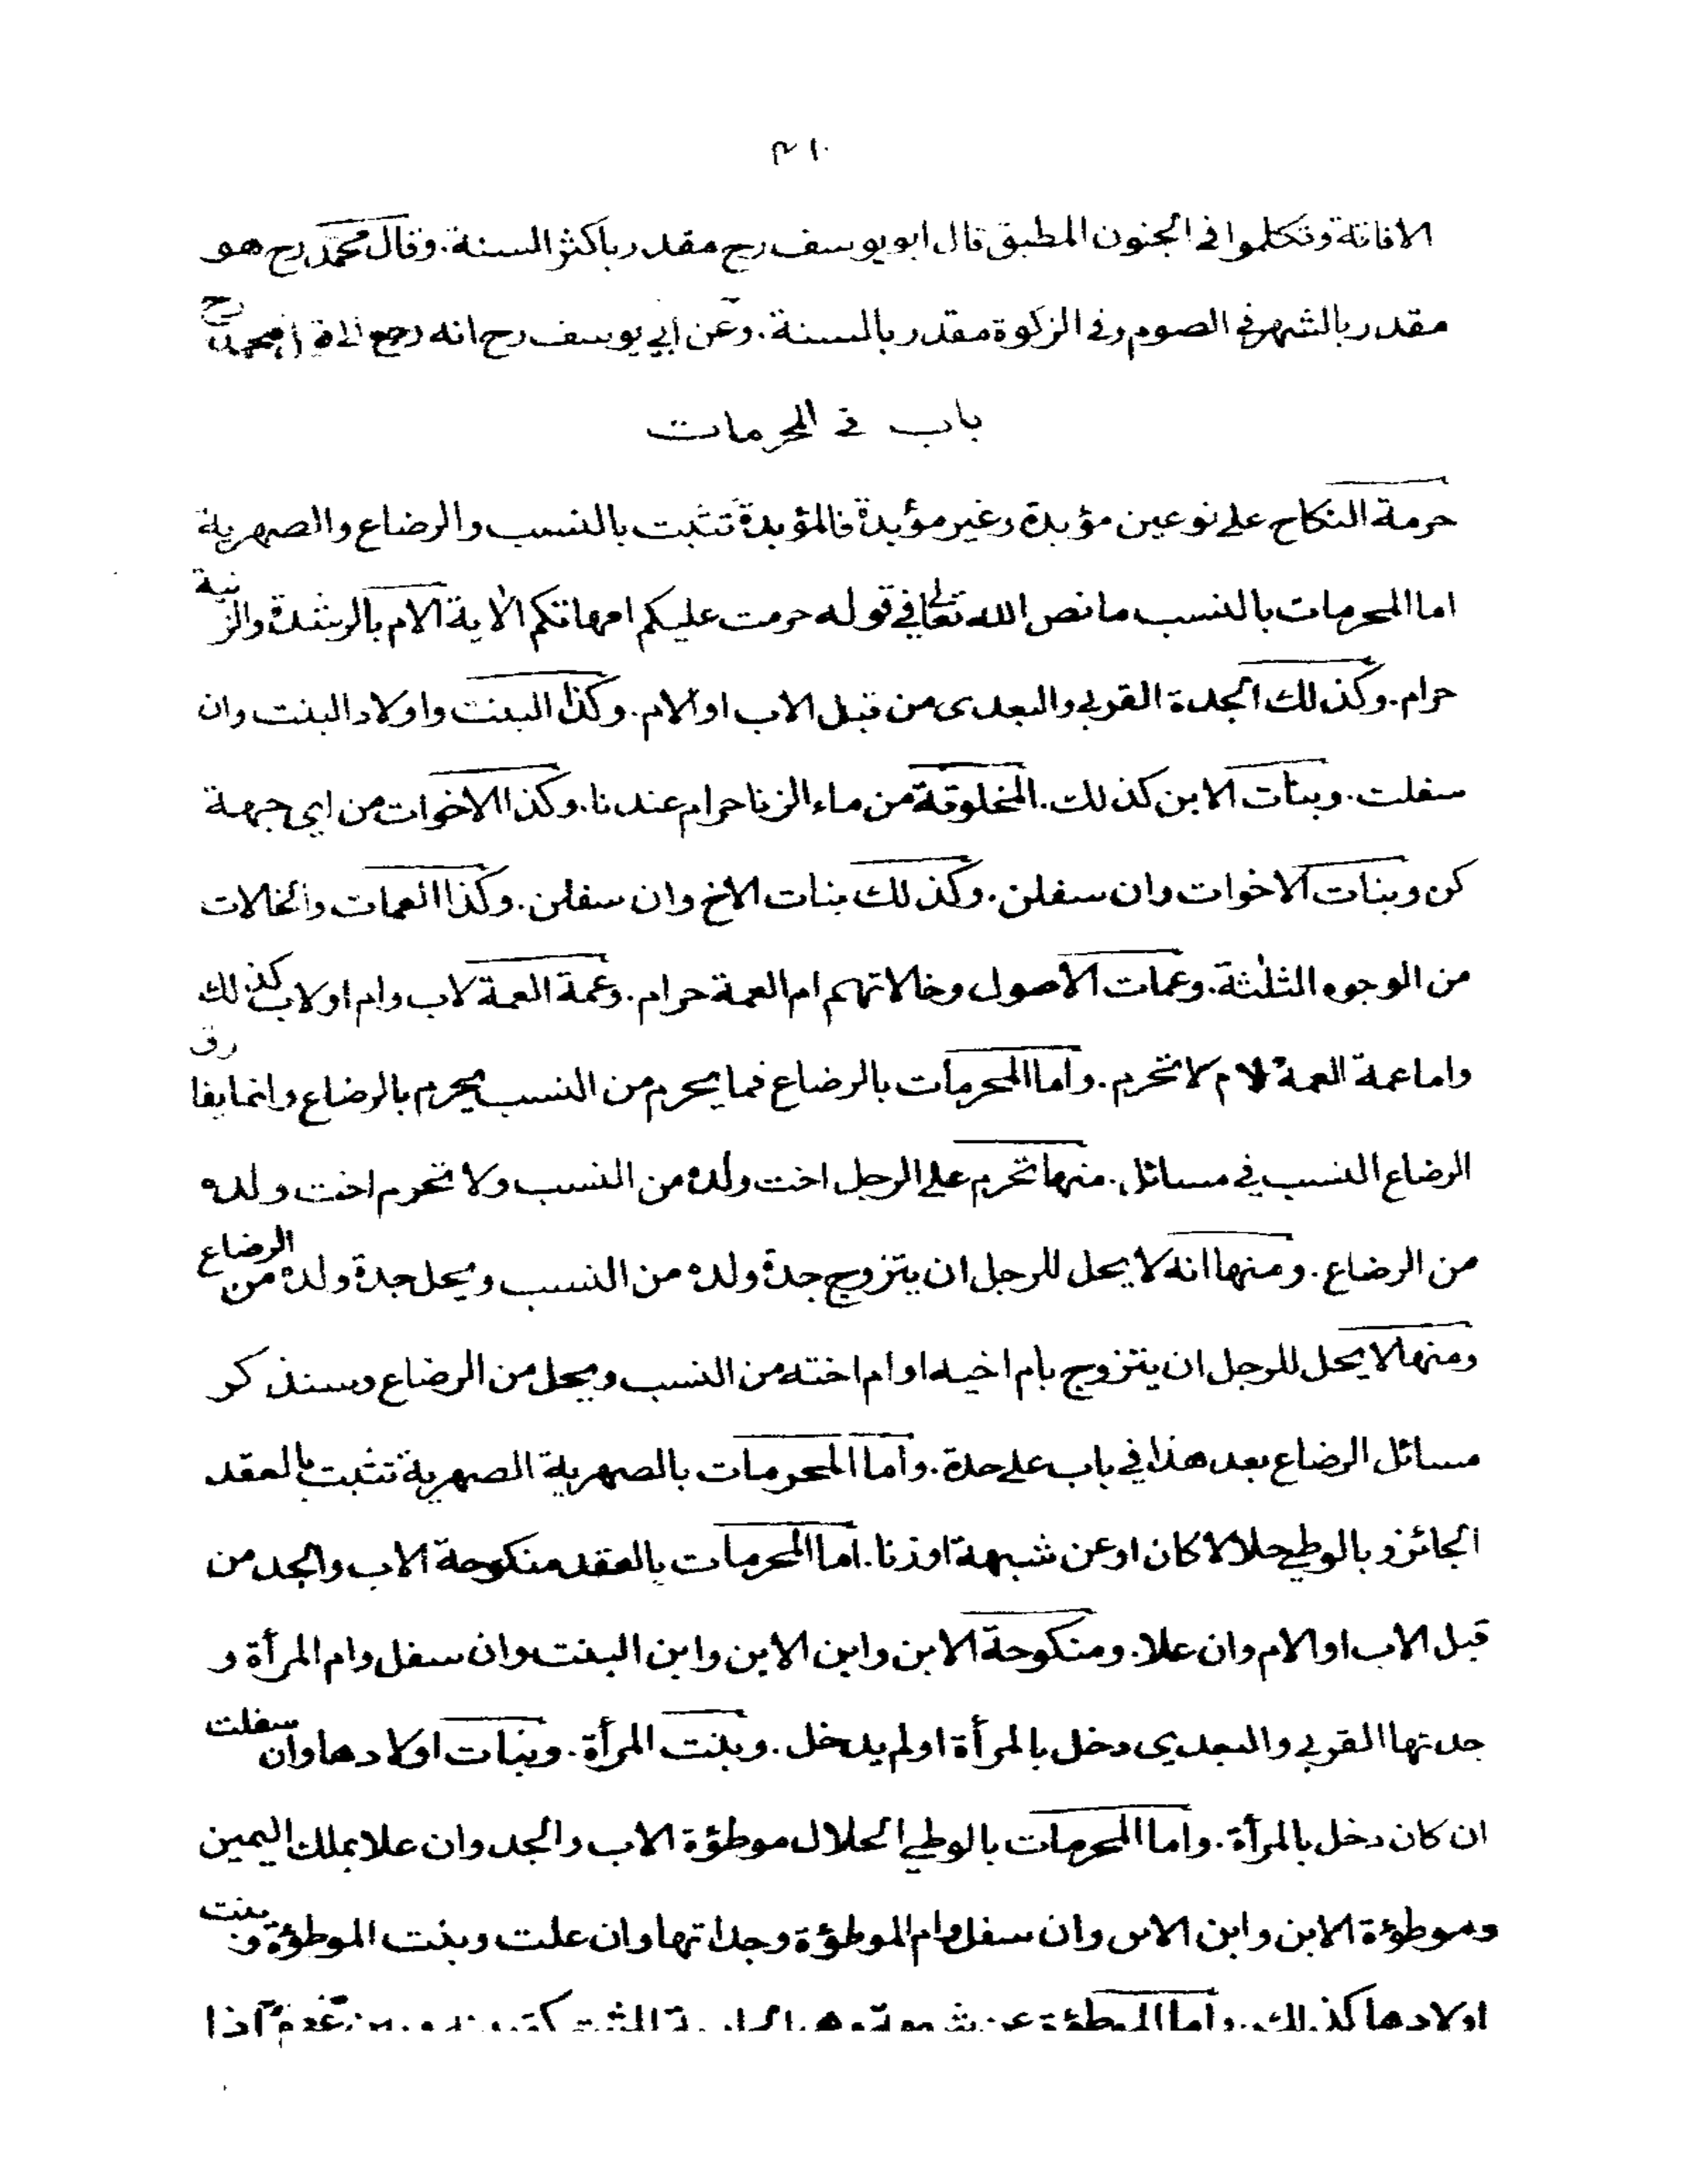 ٣١٠
الافاقة وتكلموا فى الجنون المطبق قال ابو يوسف رح مقدر باكثر السنة. وقال محمد رح هو
مقدر بالشهر فى الصوم وفى الزكوة مقدر بالسنة. وعن ابي يوسف رح انه رجع الى محمد رح
باب فى المحرمات
حرمة النكاح على نوعين مؤبدة وغير مؤبدة فالمؤبدة تثبت بالنسب والرضاع والصهرية
اما المحرمات بالنسب ما نص الله تعالى في قوله حرمت عليكم امهاتكم الاية الام بالرشدة والزنية
حرام. وكذلك الجدة القربى والبعدى من قبل الاب او الام. وكذا البنت واولاد البنت وان
سفلت. وبنات الابن كذلك. المخلوقة من ماء الزنا حرام عندنا. وكذا الاخوات من اي جهة
كن وبنات الاخوات وان سفلن. وكذلك بنات الاخ وان سفلن. وكذا العمات والخالات
من الوجوه الثلثة. وعمات الاصول وخالاتهم ام العمة حرام. وعمة العمة لاب وام او لاب كذلك
واما عمة العمة لام لا تحرم. واما المحرمات بالرضاع فما يحرم من النسب يحرم بالرضاع وانما يفارق
الرضاع النسب في مسائل. منها تحرم على الرجل اخت ولده من النسب ولا تحرم اخت ولده
من الرضاع. ومنها انه لا يحل للرجل ان يتزوج جدة ولده من النسب ويحل جدة ولده من الرضاع
ومنها لا يحل للرجل ان يتزوج بام اخيه او ام اخته من النسب ويحل من الرضاع وسنذكر
مسائل الرضاع بعد هذا في باب على حدة. واما المحرمات بالصهرية الصهرية تثبت بالعقد
الجائز و بالوطي حلالا كان او عن شبهة او زنا. اما المحرمات بالعقد منكوحة الاب والجد من
قبل الاب او الام وان علا. ومنكوحة الابن وابن الابن وابن البنت وان سفل وام المرأة و
جدتها القربى والبعدي دخل بالمرأة او لم يدخل. وبنت المرأة. وبنات اولادها وان سفلت
ان كان دخل بالمرأة. واما المحرمات بالوطي الحلال موطؤة الاب والجد وان علا بملك اليمين
وموطؤة الابن وابن الابن وان سفل وام الموطؤة وجداتها وان علت وبنت الموطؤة وبنت
اولادها كذلك. واما الموطؤة عن شبهة اذا